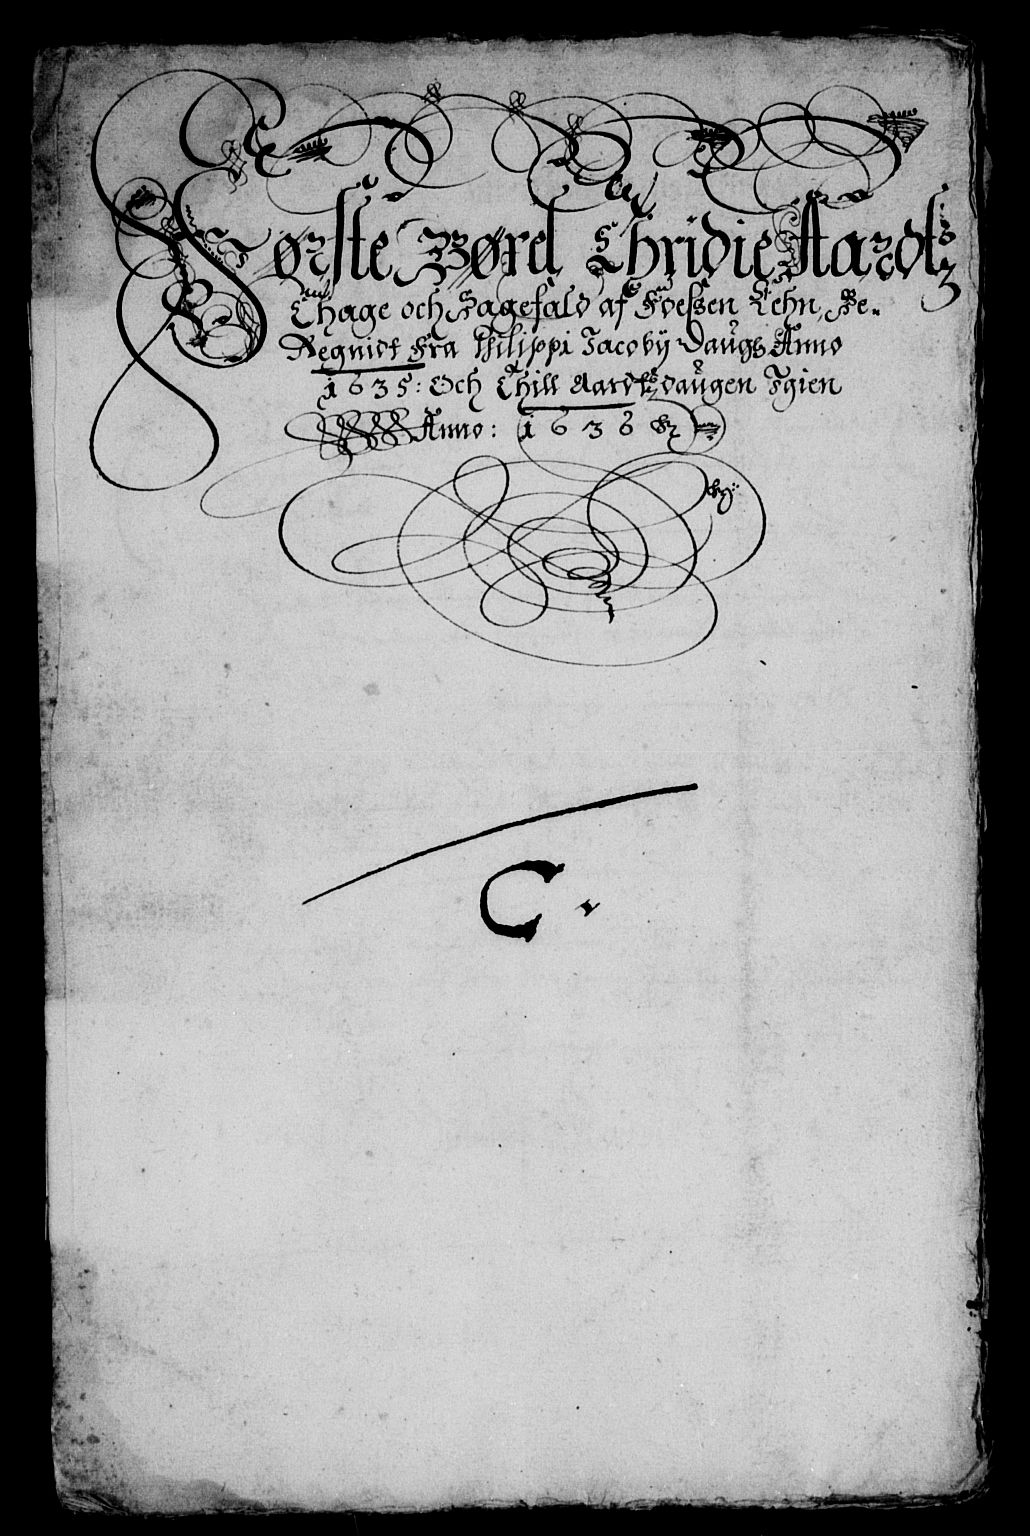 Første Bøxel Thridie Aardtz
Thage och Sagefald af Foeßen Lehn, Be-
Regnidt Fra Philippi Jacobij Daugs Anno
1635: Och Thill Aardtzdaugen Igien
Anno: 1636
C.